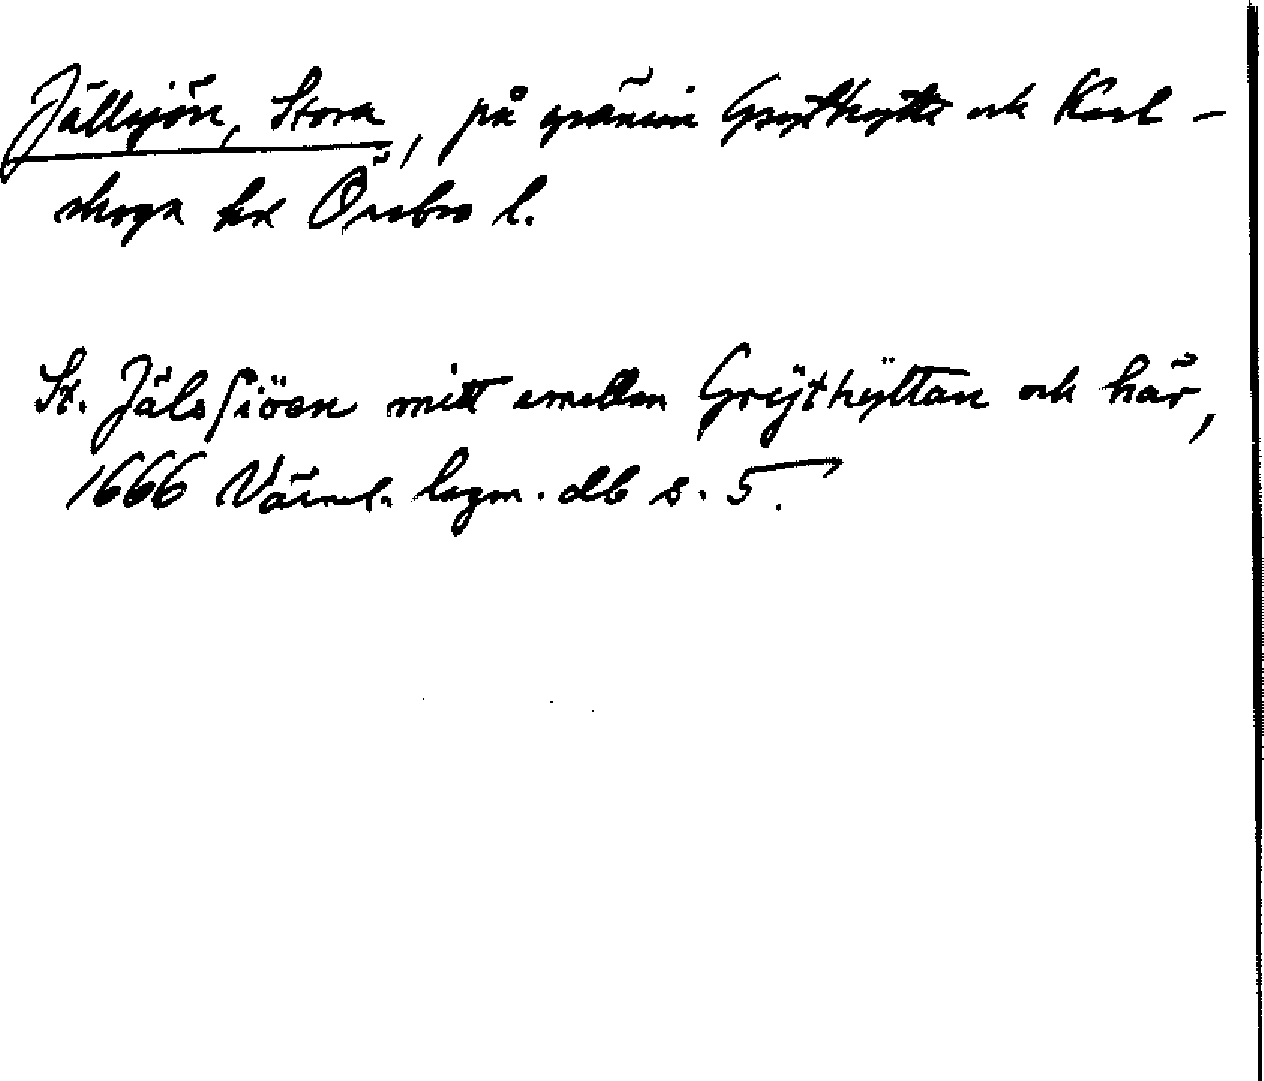 Jällsjön, Stora, på gränsen Grythytte och Karl-
skoga hd Örebro l.
St. Jälsſiöen mitt emellan Grÿthÿttan och här,
1666 Värml. lagm. db s. 5.